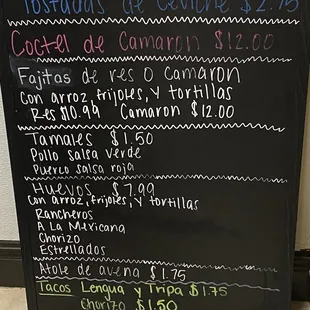 Tostadas de Ceviche $2.75
Coctel de Camaron $12.00
Fajitas de res o Camaron
Con arroz, frijoles, y tortillas
Res $10.99 Camaron $12.00
Tamales $1.50
Pollo salsa verde
Puerco salsa roja
Huevos $7.99
Con arroz, frijoles, y tortillas
Rancheros
A La Mexicana
Chorizo
Estrellados
Atole de avena $1.75
Tacos Lengua y Tripa $1.75
Chorizo $1.50